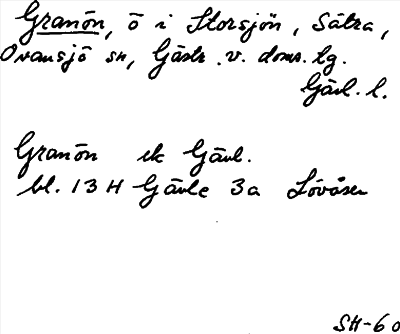 Granön, ö i Storsjön, Sätra,
Ovansjö sn, Gästr. v. doms. tg.
Gävl. l.
Granön ek Gävl.
bl. 13 H Gävle 3a Lövåsen
SH-60